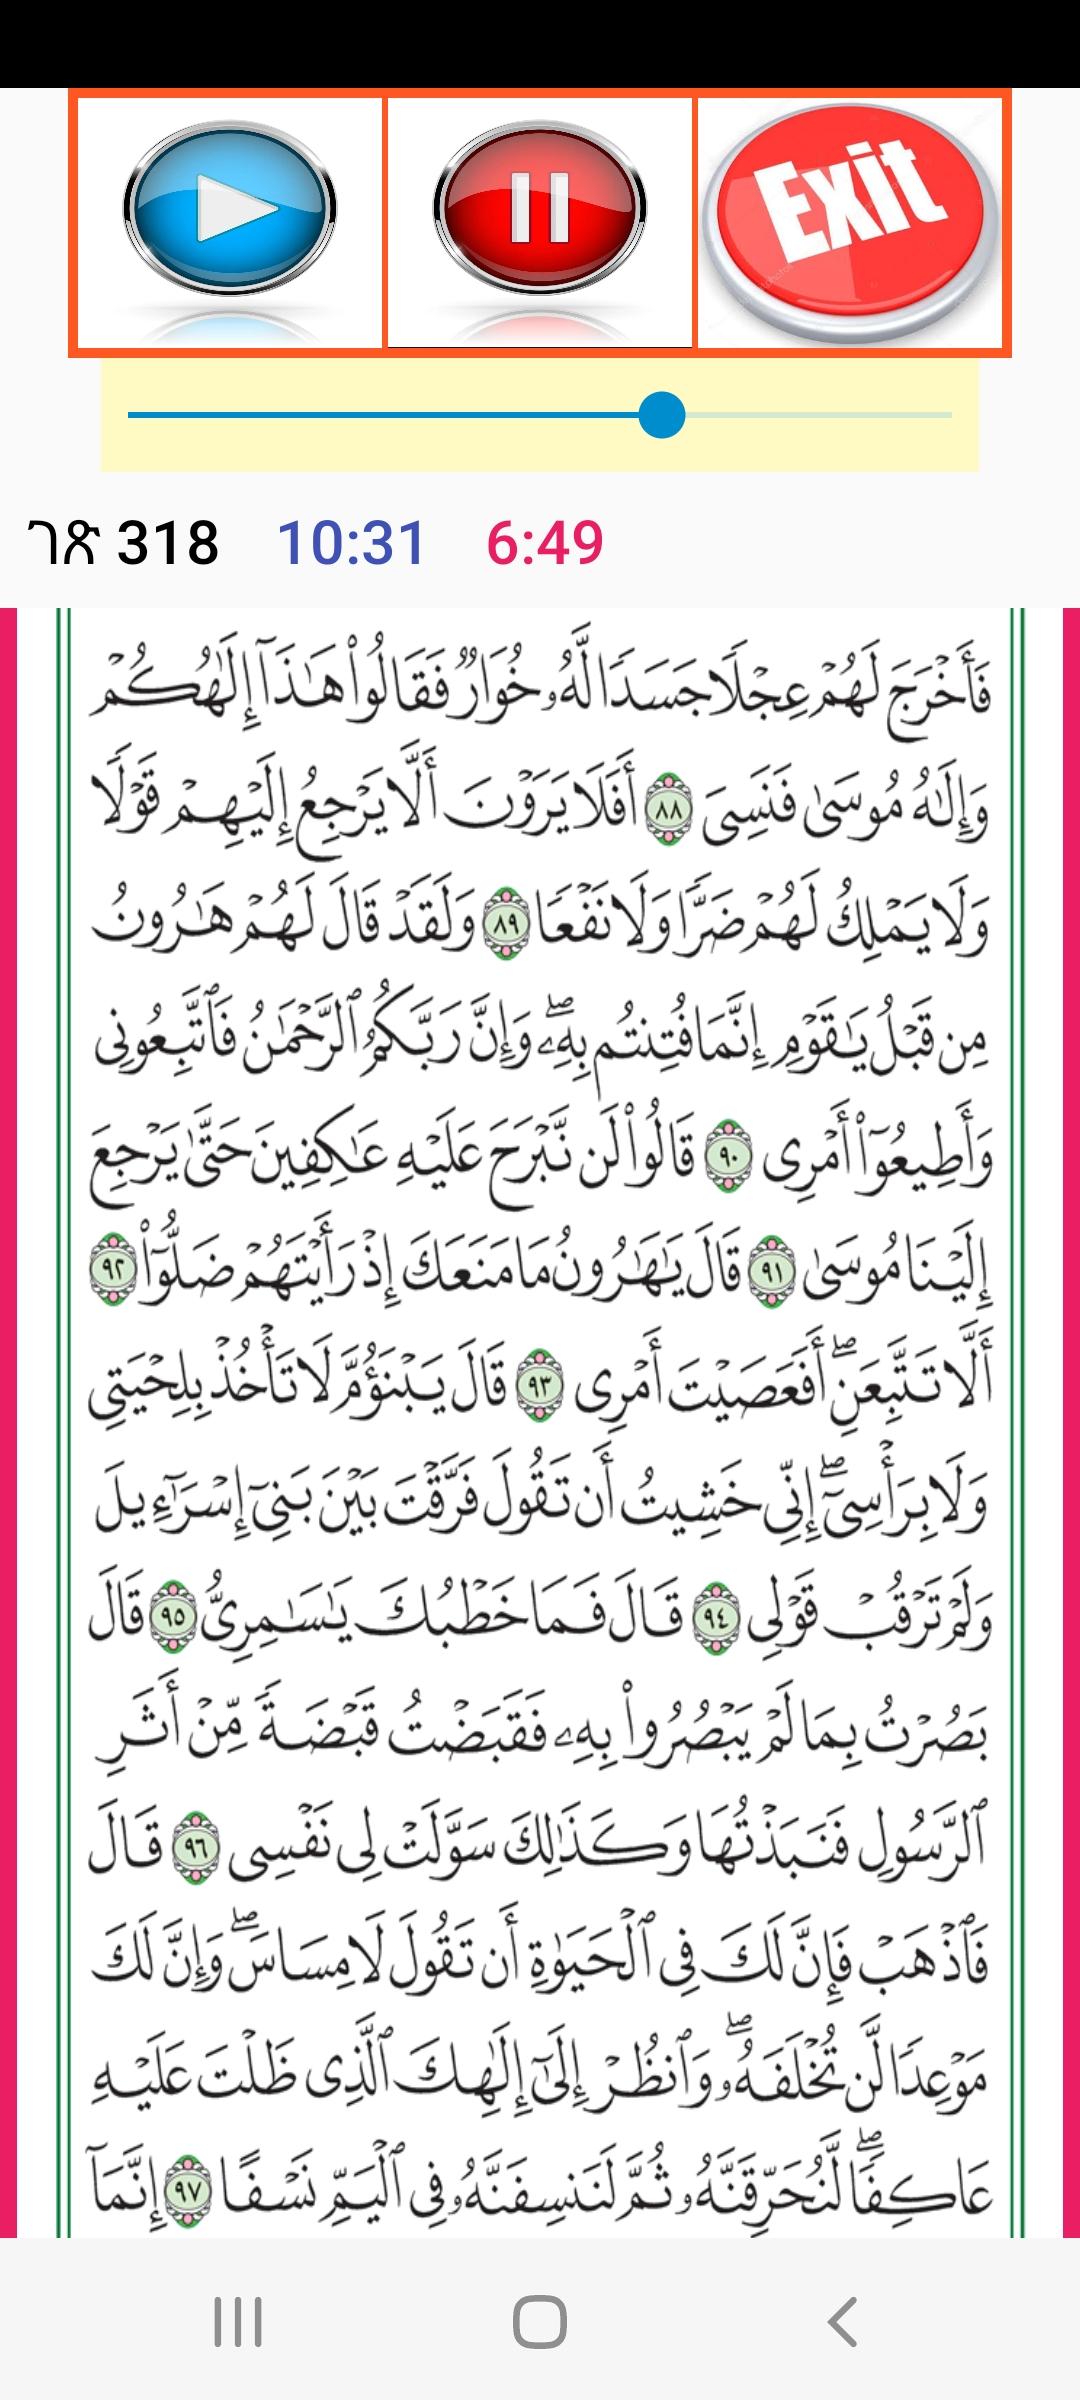 Exit
ገጽ 318 10:31 6:49
فَأَخْرَجَ لَهُمْ عِجْلًا جَسَدًا لَّهُۥ خُوَارٌ فَقَالُوا۟ هَـٰذَآ إِلَـٰهُكُمْ
وَإِلَـٰهُ مُوسَىٰ فَنَسِىَ ٨٨ أَفَلَا يَرَوْنَ أَلَّا يَرْجِعُ إِلَيْهِمْ قَوْلًا
وَلَا يَمْلِكُ لَهُمْ ضَرًّا وَلَا نَفْعًا ٨٩ وَلَقَدْ قَالَ لَهُمْ هَـٰرُونُ
مِن قَبْلُ يَـٰقَوْمِ إِنَّمَا فُتِنتُم بِهِۦ ۖ وَإِنَّ رَبَّكُمُ ٱلرَّحْمَـٰنُ فَٱتَّبِعُونِى
وَأَطِيعُوٓا۟ أَمْرِى ٩٠ قَالُوا۟ لَن نَّبْرَحَ عَلَيْهِ عَـٰكِفِينَ حَتَّىٰ يَرْجِعَ
إِلَيْنَا مُوسَىٰ ٩١ قَالَ يَـٰهَـٰرُونُ مَا مَنَعَكَ إِذْ رَأَيْتَهُمْ ضَلُّوٓا۟ ٩٢
أَلَّا تَتَّبِعَنِ ۖ أَفَعَصَيْتَ أَمْرِى ٩٣ قَالَ يَبْنَؤُمَّ لَا تَأْخُذْ بِلِحْيَتِى
وَلَا بِرَأْسِىٓ ۖ إِنِّى خَشِيتُ أَن تَقُولَ فَرَّقْتَ بَيْنَ بَنِىٓ إِسْرَٰٓءِيلَ
وَلَمْ تَرْقُبْ قَوْلِى ٩٤ قَالَ فَمَا خَطْبُكَ يَـٰسَـٰمِرِىُّ ٩٥ قَالَ
بَصُرْتُ بِمَا لَمْ يَبْصُرُوا۟ بِهِۦ فَقَبَضْتُ قَبْضَةً مِّنْ أَثَرِ
ٱلرَّسُولِ فَنَبَذْتُهَا وَكَذَٰلِكَ سَوَّلَتْ لِى نَفْسِى ٩٦ قَالَ
فَٱذْهَبْ فَإِنَّ لَكَ فِى ٱلْحَيَوٰةِ أَن تَقُولَ لَا مِسَاسَ ۖ وَإِنَّ لَكَ
مَوْعِدًا لَّن تُخْلَفَهُۥ ۖ وَٱنظُرْ إِلَىٰٓ إِلَـٰهِكَ ٱلَّذِى ظَلْتَ عَلَيْهِ
عَاكِفًا ۖ لَّنُحَرِّقَنَّهُۥ ثُمَّ لَنَنسِفَنَّهُۥ فِى ٱلْيَمِّ نَسْفًا ٩٧ إِنَّمَآ